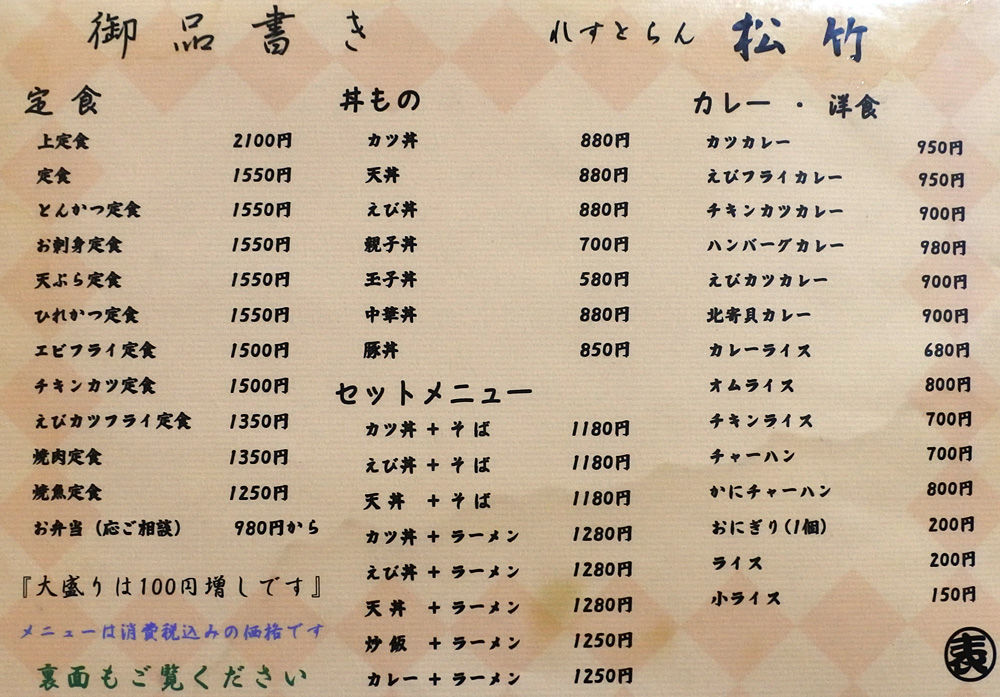 御品書き
れすとらん 松竹
定食
上定食 2100円
定食 1550円
とんかつ定食 1550円
お刺身定食 1550円
天ぷら定食 1550円
ひれかつ定食 1550円
エビフライ定食 1500円
チキンカツ定食 1500円
えびカツフライ定食 1350円
焼肉定食 1350円
焼魚定食 1250円
お弁当（応ご相談） 980円から
『大盛りは100円増しです』
メニューは消費税込みの価格です
裏面もご覧ください
丼もの
カツ丼 880円
天丼 880円
えび丼 880円
親子丼 700円
玉子丼 580円
中華丼 880円
豚丼 850円
セットメニュー
カツ丼 + そば 1180円
えび丼 + そば 1180円
天丼 + そば 1180円
カツ丼 + ラーメン 1280円
えび丼 + ラーメン 1280円
天丼 + ラーメン 1280円
炒飯 + ラーメン 1250円
カレー + ラーメン 1250円
カレー・洋食
カツカレー 950円
えびフライカレー 950円
チキンカツカレー 900円
ハンバーグカレー 980円
えびカツカレー 900円
北寄貝カレー 900円
カレーライス 680円
オムライス 800円
チキンライス 700円
チャーハン 700円
かにチャーハン 800円
おにぎり（1個） 200円
ライス 200円
小ライス 150円
表